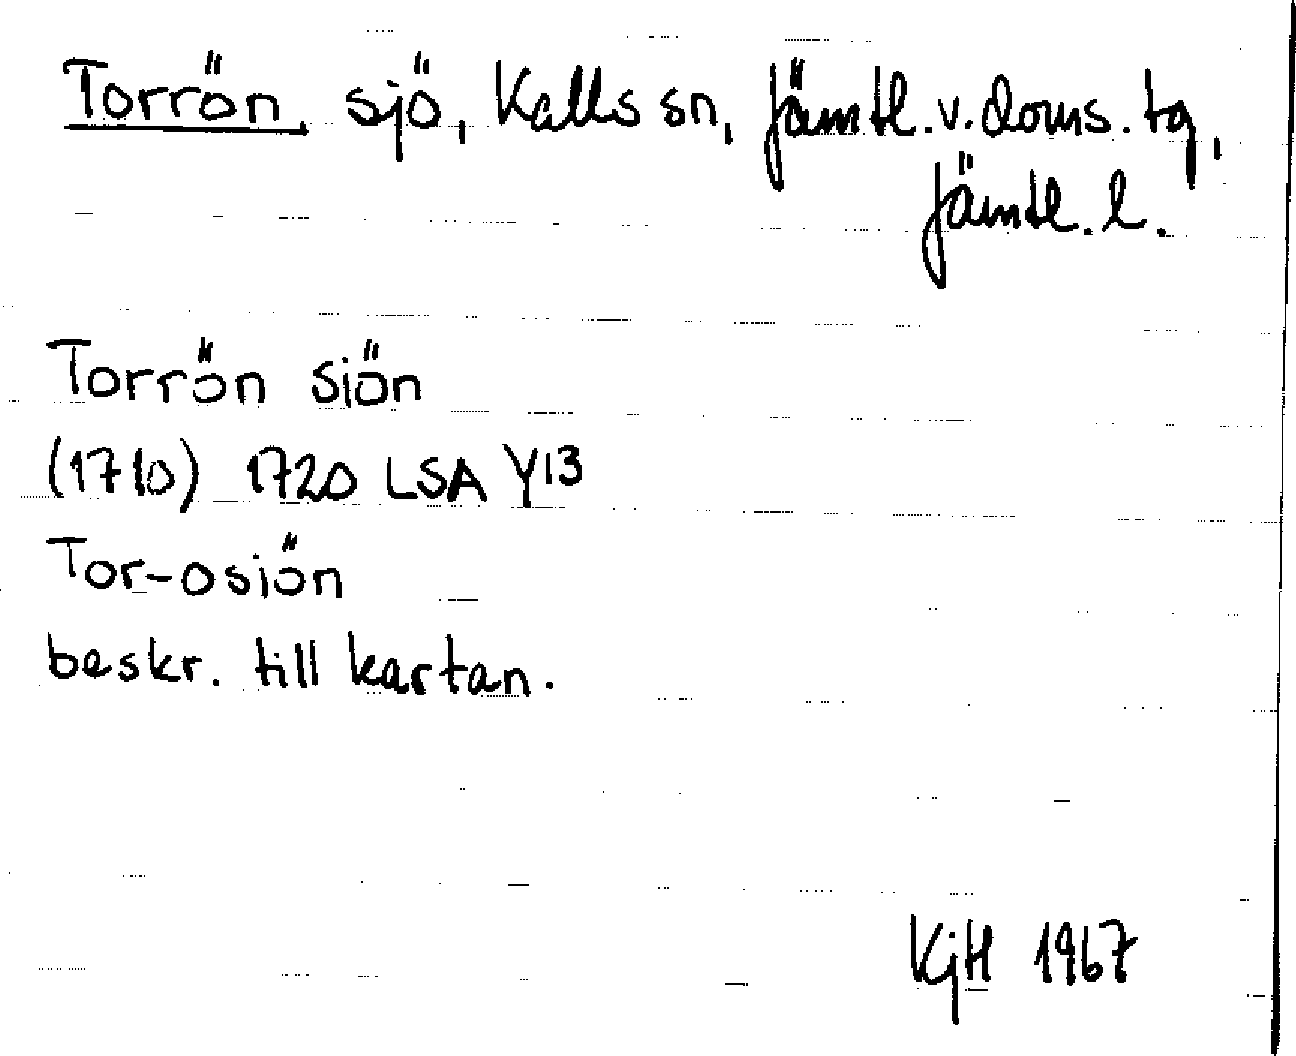 Torrön, sjö, Kalls sn, Jämtl. v. doms. tg,
Jämtl. l.
Torrön siön
(1710) 1720 LSA Y13
Tor-osiön
beskr. till kartan.
KjH 1967